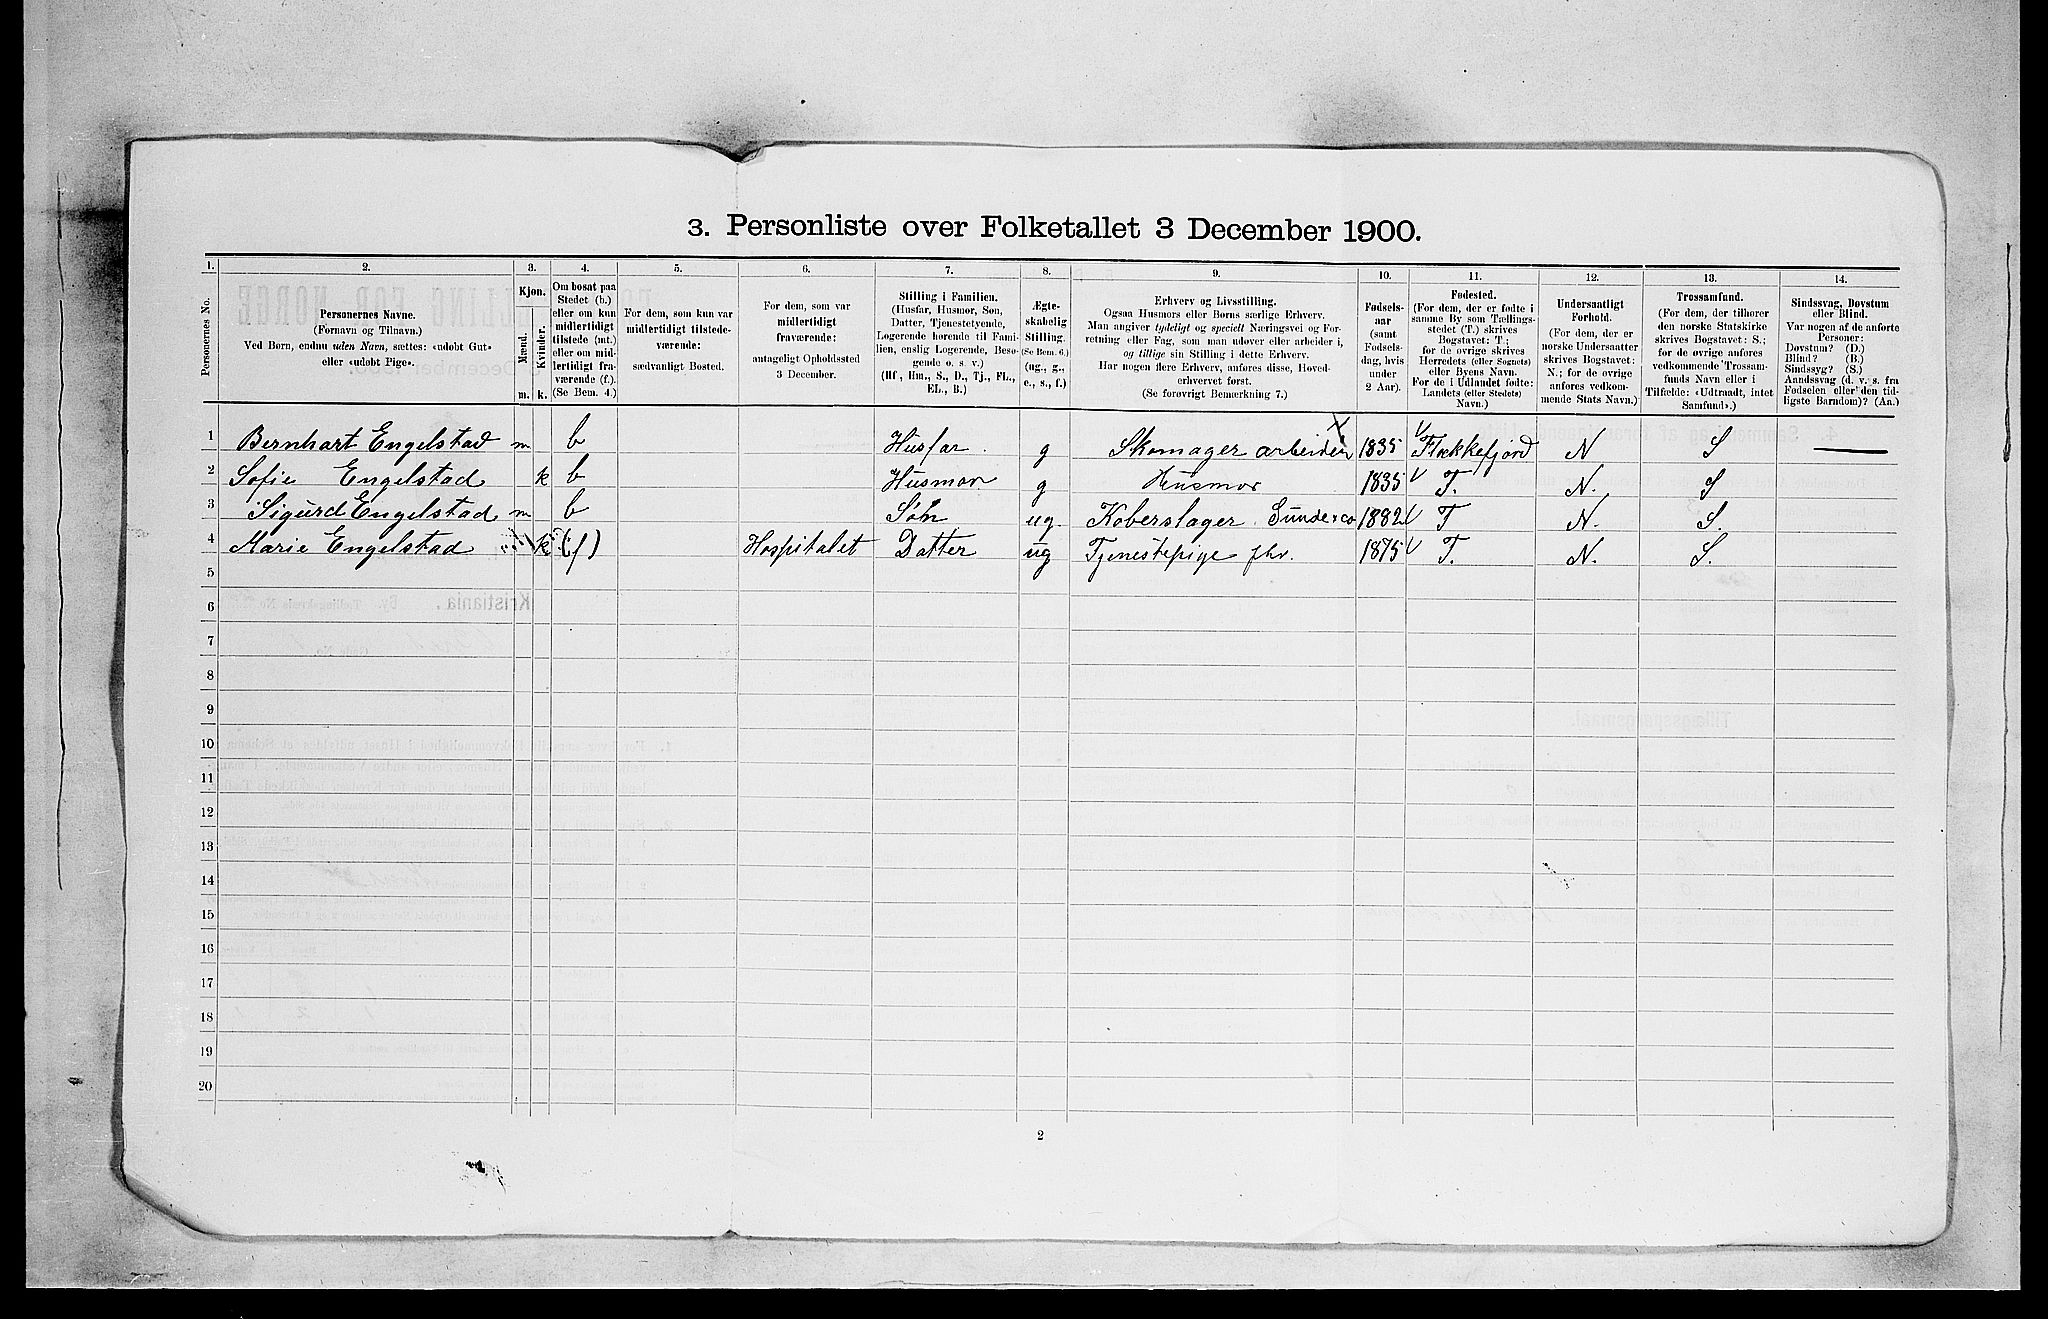 3. Personliste over Folketallet 3 December 1900.
1. 2. 3. 4. 5. 6. 7. 8. 9. 10. 11. 12. 13. 14.
Personernes No.
Personernes Navne.
(Fornavn og Tilnavn.)
Ved Børn, endnu uden Navn, sættes: «udøbt Gut»
eller «udøbt Pige».
Kjøn.
Mænd. Kvinder.
m. k.
Om bosat paa
Stedet (b.)
eller om kun
midlertidigt
tilstede (mt.)
eller om mid-
lertidigt fra-
værende (f.).
(Se Bem. 4.)
For dem, som kun var
midlertidigt tilstede-
værende:
sædvanligt Bosted.
For dem, som var
midlertidigt
fraværende:
antageligt Opholdssted
3 December.
Stilling i Familien.
(Husfar, Husmor, Søn,
Datter, Tjenestetyende,
Logerende hørende til Fami-
lien, enslig Logerende, Besø-
gende o. s. v.)
(Hf, Hm., S., D., Tj., FL.,
EL., B.)
Ægte-
skabelig
Stilling.
(Se Bem. 6.)
(ug., g.,
e., s., f.)
Erhverv og Livsstilling.
Ogsaa Husmors eller Børns særlige Erhverv.
Man angiver tydeligt og specielt Næringsvei og For-
retning eller Fag, som man udøver eller arbeider i,
og tillige sin Stilling i dette Erhverv.
Har nogen flere Erhverv, anføres disse, Hoved-
erhvervet først.
(Se forøvrigt Bemærkning 7.)
Fødsels-
aar
(samt
Fødsels-
dag, hvis
under
2 Aar).
Fødested.
(For dem, der er fødte i
samme By som Tællings-
stedet (T.) skrives
Bogstavet: T.;
for de øvrige skrives
Herredets (eller Sognets)
eller Byens Navn.
For de i Udlandet fødte:
Landets (eller Stedets)
Navn.)
Undersaatligt
Forhold.
(For dem, der er
norske Undersaatter
skrives Bogstavet:
N.; for de øvrige
anføres vedkom-
mende Stats Navn.)
Trossamfund.
(For dem, der tilhører
den norske Statskirke
skrives Bogstavet: S.;
for de øvrige anføres
vedkommende Trossam-
funds Navn eller i
Tilfælde: «Udtraadt, intet
Samfund».)
Sindssvag, Døvstum
eller Blind.
Var nogen af de anførte
Personer:
Døvstum? (D.)
Blind? (B.)
Sindssyg? (S.)
Aandssvag (d. v. s. fra
Fødselen eller den tid-
ligste Barndom)? (Aa.)
1 Bernhart Engelstad m b Husfar. g Skomager arbeider 1835 Flekkefjord N S
2 Sofie Engelstad k b Husmor g Husmor 1835 T. N. S
3 Sigurd Engelstad m b Søn ug. Koberslager 1882 T N. S.
4 Marie Engelstad k (f) Hospitalet Datter ug Tjenestepige fhv. 1875 T. N. S.
5
6
7
8
9
10
11
12
13
14
15
16
17
18
19
20
2